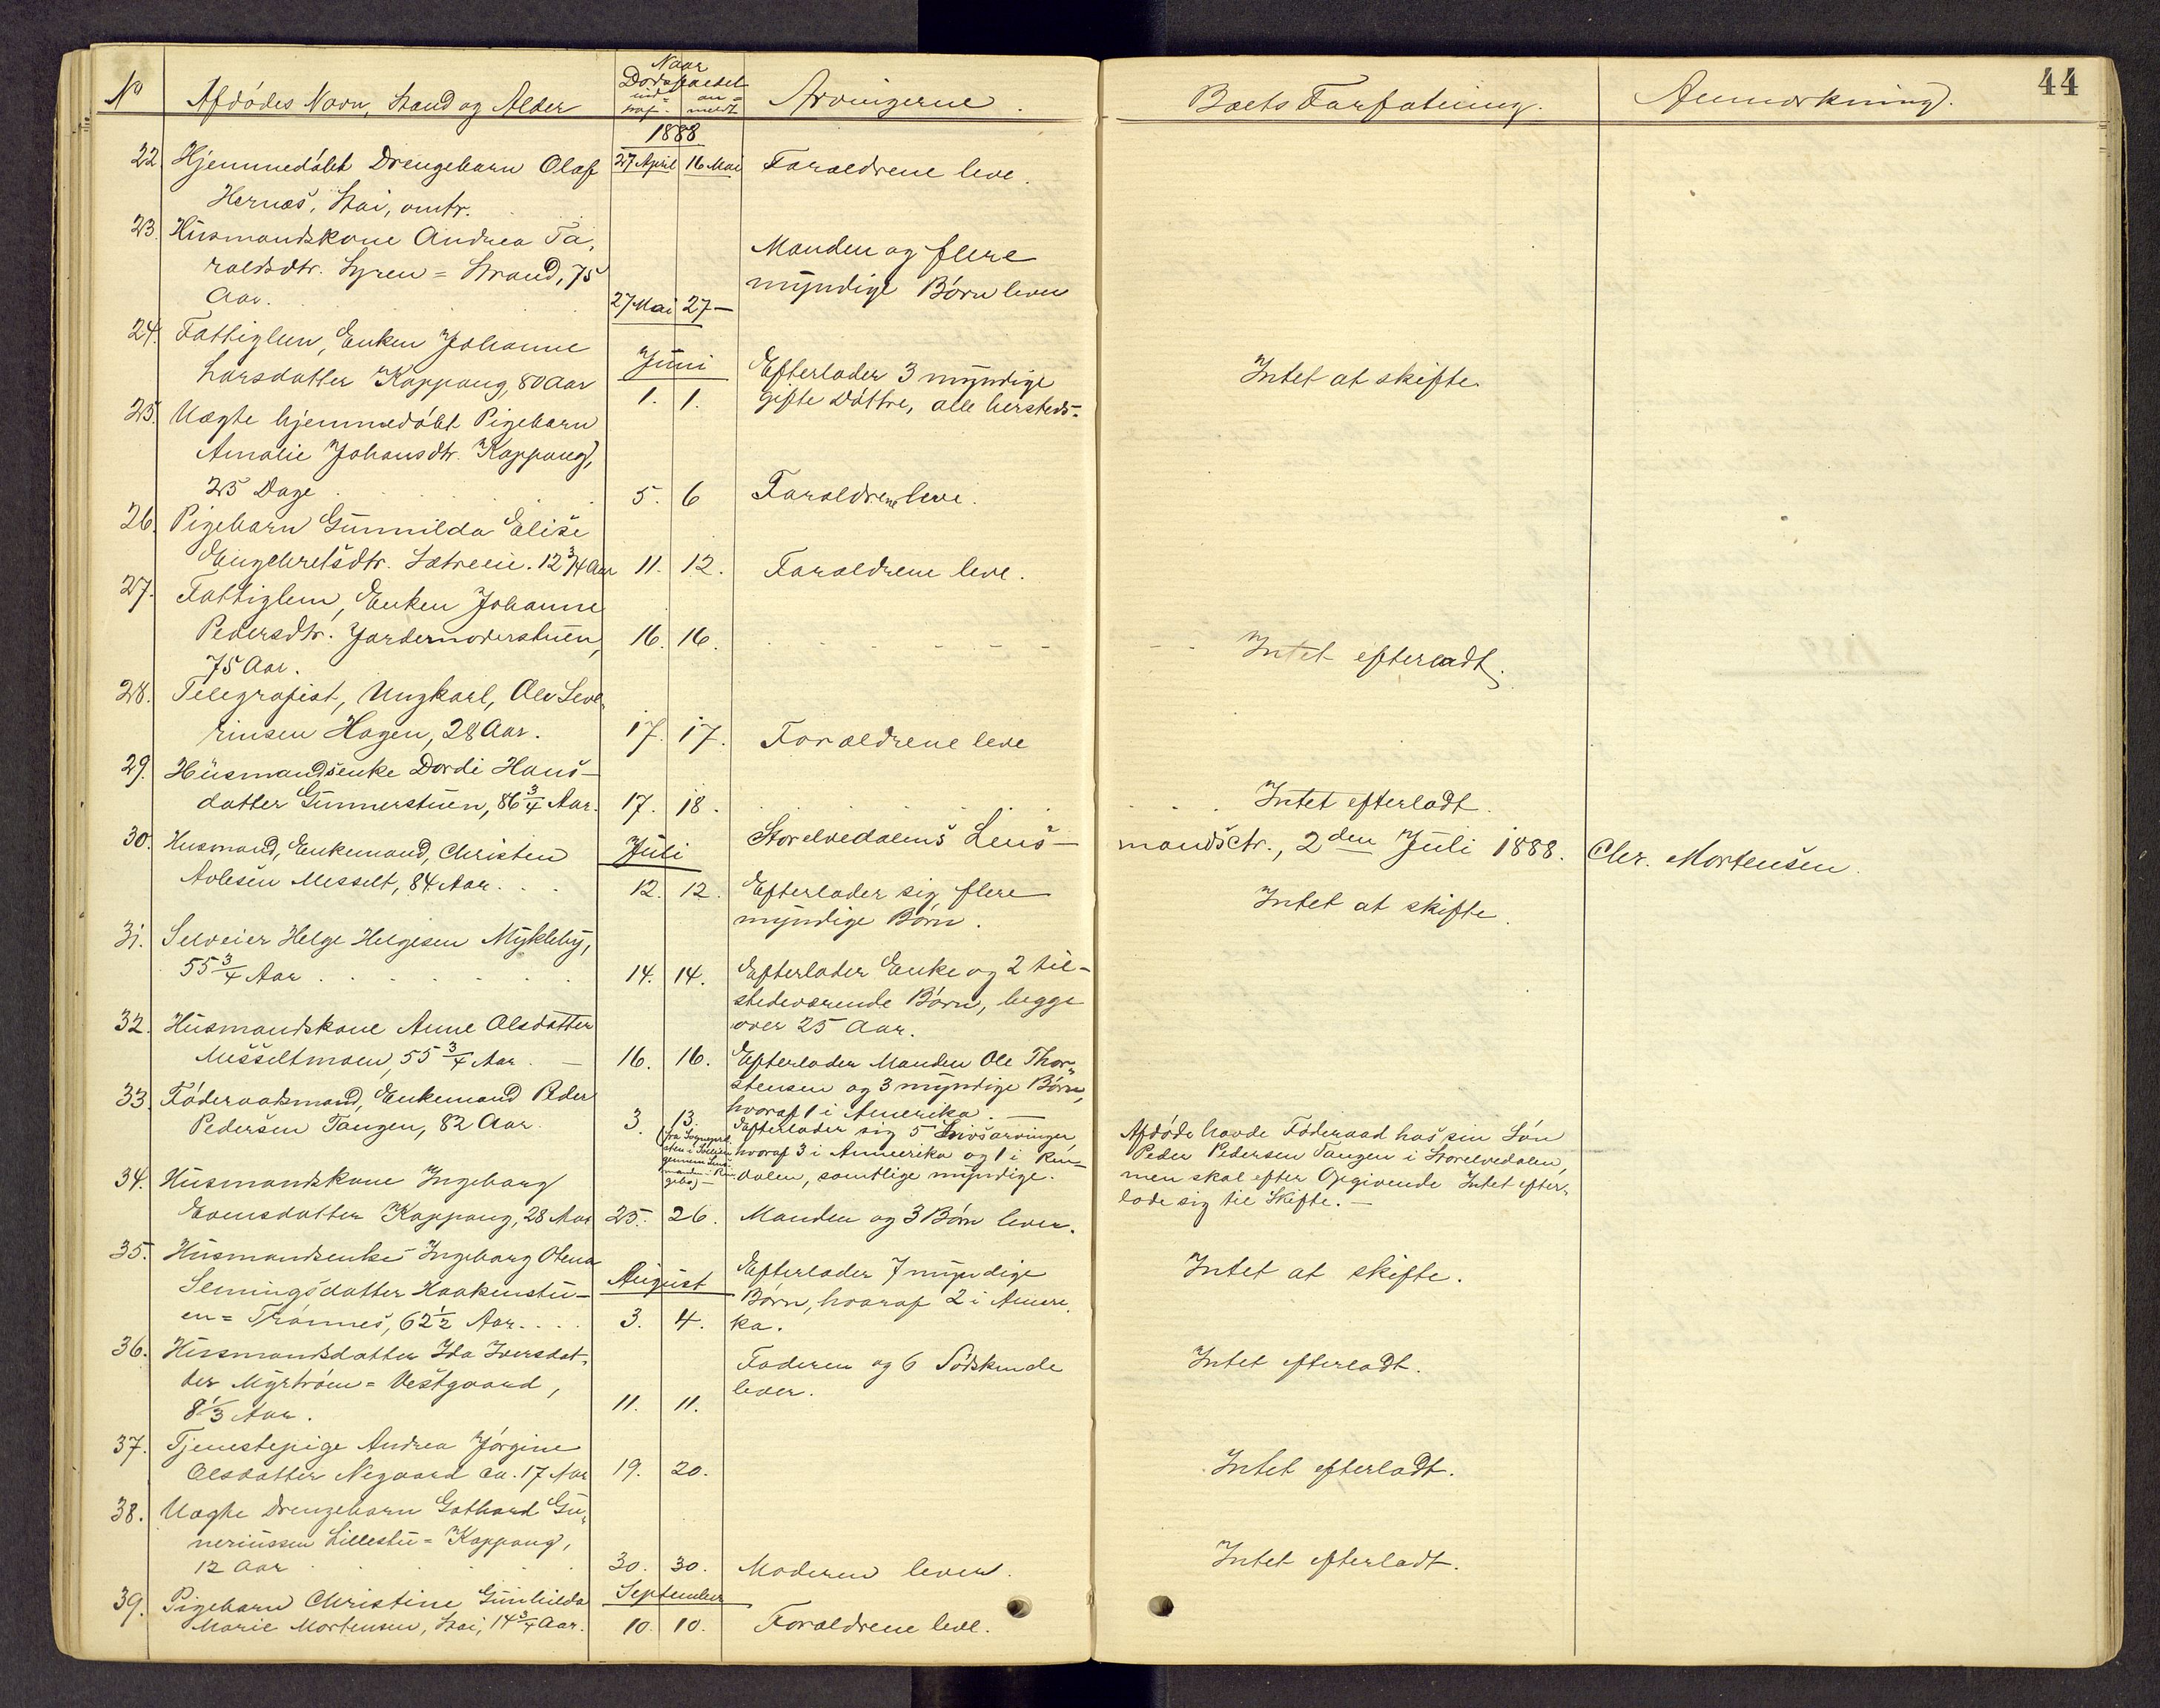 44
No Afdødes Navn, Stand og Alder Naar Dødsfaldet indtraf anmeldt Arvingerne. Boets Forfatning. Anmærkning.
1888
22. Hjemmedøbt Drengebarn Olaf 27 April 16 Mai Forældrene leve.
Hernæs, Stai, omtr.
23. Husmandskone Andrea Ta-
raldsdtr. Syren = Strand, 75 Manden og flere
Aar. 27 Mai 27 — myndige Børn lever
24. Fattiglem, Enken Johanne Juni
Larsdatter Koppang, 80 Aar 1. 1. Efterlader 3 myndige Intet at skifte.
gifte Døttre, alle hersteds.
25. Uægte hjemmedøbt Pigebarn
Amalie Johansdtr. Koppang,
25 Dage 5. 6 Forældrene leve.
26. Pigebarn Gunnilda Elise
Engebretsdtr. Sætreeie. 12 3/4 Aar 11. 12. Forældrene leve.
27. Fattiglem, Enken Johanne
Pedersdtr. Jordemoderstuen, 16. 16. Intet efterladt.
75 Aar.
28. Telegrafist, Ungkarl, Ole Seve-
rinsen Hagen, 28 Aar. 17. 17. Forældrene leve
29. Husmandsenke Dordi Hans-
datter Gunnerstuen, 86 3/4 Aar. 17. 18. Intet efterladt.
Storelvedalens Lens-mandsctr., 2den Juli 1888. Chr. Mortensen.
30. Husmand, Enkemand, Christen Juli
Messelt, 84 Aar. 12. 12. Efterlader sig flere Intet at skifte.
myndige Børn.
31. Selveier Helge Helgesen Mykleby,
55 3/4 Aar 14. 14. Efterlader Enke og 2 til-
stedeværende Børn, begge
over 25 Aar.
32. Husmandskone Anne Olsdatter
Messeltmoen, 55 3/4 Aar. — 16. 16. Efterlader Manden Ole Thor-
stensen og 3 myndige Børn,
hvoraf 1 i Amerika. —
33. Føderaadsmand, Enkemand Peder
Pedersen Tangen, 82 Aar. 3. 13. Efterlader sig 5 Livsarvinger,
hvoraf 3 i Amerika og 1 i Ren-
dalen, samtlige myndige.
Afdøde havde Føderaad hos sin Søn
Peder Pedersen Tangen i Storelvedalen,
men skal efter Opgivende Intet efter-
lade sig til Skifte. —
34. Husmandskone Ingeborg
Evensdatter Koppang, 28 Aar 25. 26. Manden og 3 Børn lever.
35. Husmandsenke Ingeborg Olena August
Semmingsdatter Haakenstu- Efterlader 7 myndige Intet at skifte.
en = Trønnes, 62 1/2 Aar. 3. 4. Børn, hvoraf 2 i Amere-
ka.
36. Husmandsdatter Ida Iversdat-
ter = Vestgaard, Faderen og 6 Sødskende Intet efterladt.
8 1/3 Aar. 11. 11. lever.
37. Tjenestepige Andrea Jørgine
Olsdatter Negaard ca. 17 Aar 19. 20. Intet efterladt.
38. Uægte Drengebarn Gothard Gu-
neriussen Lillestu = Koppang,
12 Aar 30. 30. Moderen lever. Intet efterladt.
39. Pigebarn Christine Gunhilda September
Marie Mortensen, Stai, 14 3/4 Aar. 10. 10. Forældrene leve.